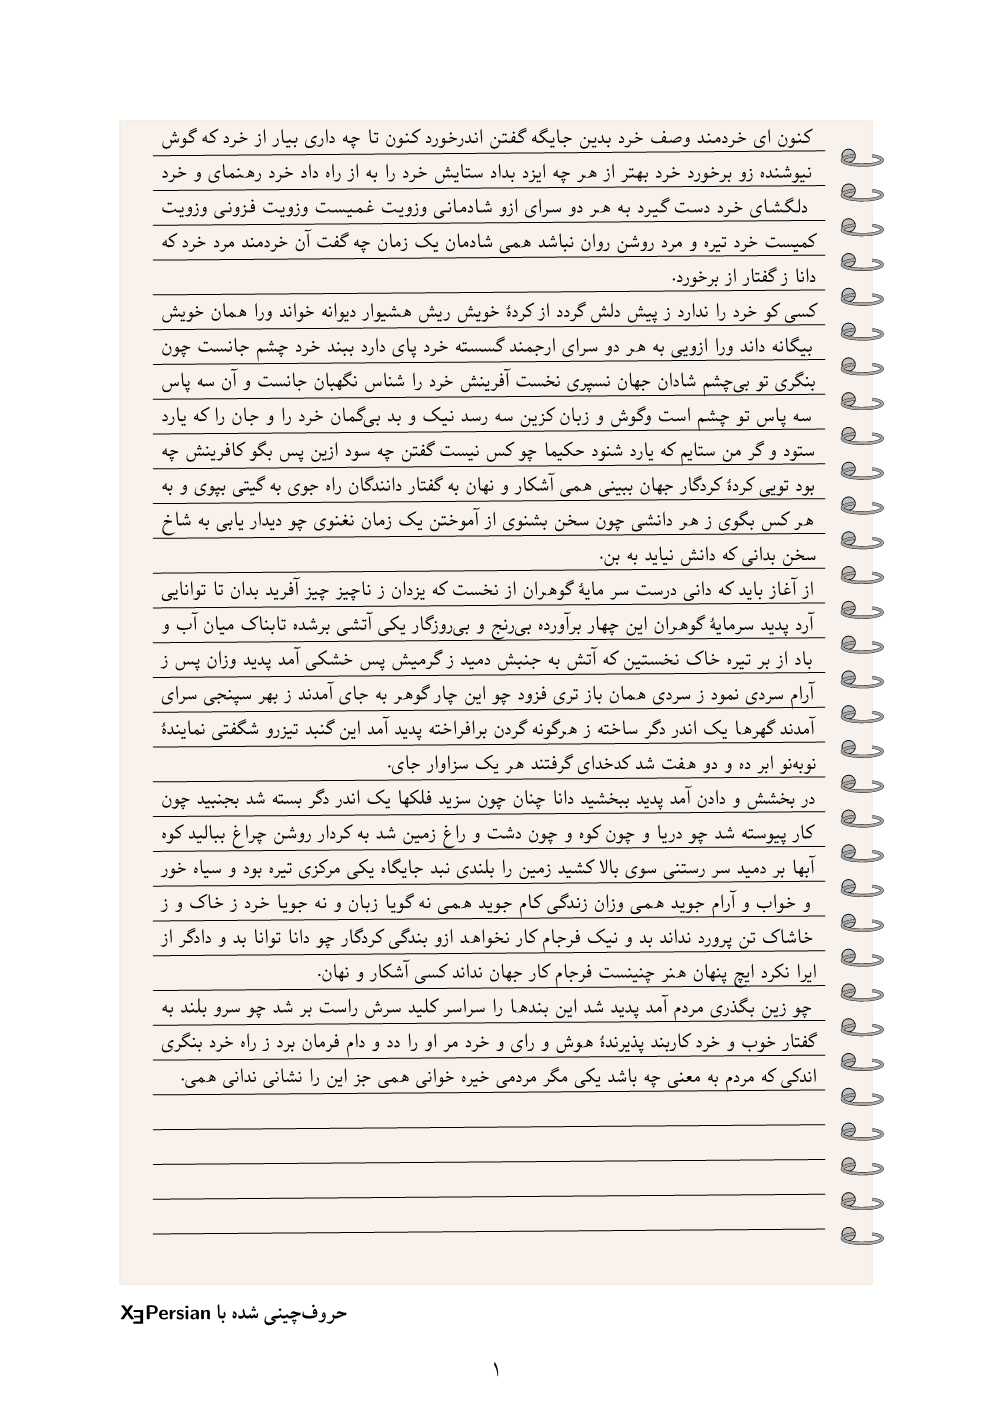 کنون ای خردمند وصف خرد بدین جایگه گفتن اندرخورد کنون تا چه داری بیار از خرد که گوش
نیوشنده زو برخورد خرد بهتر از هر چه ایزد بداد ستایش خرد را به از راه داد خرد رهنمای و خرد
دلگشای خرد دست گیرد به هر دو سرای ازو شادمانی وزویت غمیست وزویت فزونی وزویت
کمیست خرد تیره و مرد روشن روان نباشد همی شادمان یک زمان چه گفت آن خردمند مرد خرد که
دانا ز گفتار از برخورد.
کسی کو خرد را ندارد ز پیش دلش گردد از کردهٔ خویش ریش هشیوار دیوانه خواند ورا همان خویش
بیگانه داند ورا ازویی به هر دو سرای ارجمند گسسته خرد پای دارد ببند خرد چشم جانست چون
بنگری تو بی‌چشم شادان جهان نسپری نخست آفرینش خرد را شناس نگهبان جانست و آن سه پاس
سه پاس تو چشم است وگوش و زبان کزین سه رسد نیک و بد بی‌گمان خرد را و جان را که یارد
ستود و گر من ستایم که یارد شنود حکیما چو کس نیست گفتن چه سود ازین پس بگو کافرینش چه
بود تویی کردهٔ کردگار جهان ببینی همی آشکار و نهان به گفتار دانندگان راه جوی به گیتی بپوی و به
هر کس بگوی ز هر دانشی چون سخن بشنوی از آموختن یک زمان نغنوی چو دیدار یابی به شاخ
سخن بدانی که دانش نیاید به بن.
از آغاز باید که دانی درست سر مایهٔ گوهران از نخست که یزدان ز ناچیز چیز آفرید بدان تا توانایی
آرد پدید سرمایهٔ گوهران این چهار برآورده بی‌رنج و بی‌روزگار یکی آتشی برشده تابناک میان آب و
باد از بر تیره خاک نخستین که آتش به جنبش دمید ز گرمیش پس خشکی آمد پدید وزان پس ز
آرام سردی نمود ز سردی همان باز تری فزود چو این چار گوهر به جای آمدند ز بهر سپنجی سرای
آمدند گهرها یک اندر دگر ساخته ز هرگونه گردن برافراخته پدید آمد این گنبد تیزرو شگفتی نمایندهٔ
نوبه‌نو ابر ده و دو هفت شد کدخدای گرفتند هر یک سزاوار جای.
در بخشش و دادن آمد پدید ببخشید دانا چنان چون سزید فلکها یک اندر دگر بسته شد بجنبید چون
کار پیوسته شد چو دریا و چون کوه و چون دشت و راغ زمین شد به کردار روشن چراغ ببالید کوه
آبها بر دمید سر رستنی سوی بالا کشید زمین را بلندی نبد جایگاه یکی مرکزی تیره بود و سیاه خور
و خواب و آرام جوید همی وزان زندگی کام جوید همی نه گویا زبان و نه جویا خرد ز خاک و ز
خاشاک تن پرورد نداند بد و نیک فرجام کار نخواهد ازو بندگی کردگار چو دانا توانا بد و دادگر از
ایرا نکرد ایچ پنهان هنر چنینست فرجام کار جهان نداند کسی آشکار و نهان.
چو زین بگذری مردم آمد پدید شد این بندها را سراسر کلید سرش راست بر شد چو سرو بلند به
گفتار خوب و خرد کاربند پذیرندهٔ هوش و رای و خرد مر او را دد و دام فرمان برد ز راه خرد بنگری
اندکی که مردم به معنی چه باشد یکی مگر مردمی خیره خوانی همی جز این را نشانی ندانی همی.
حروف‌چینی شده با XƎPersian
۱